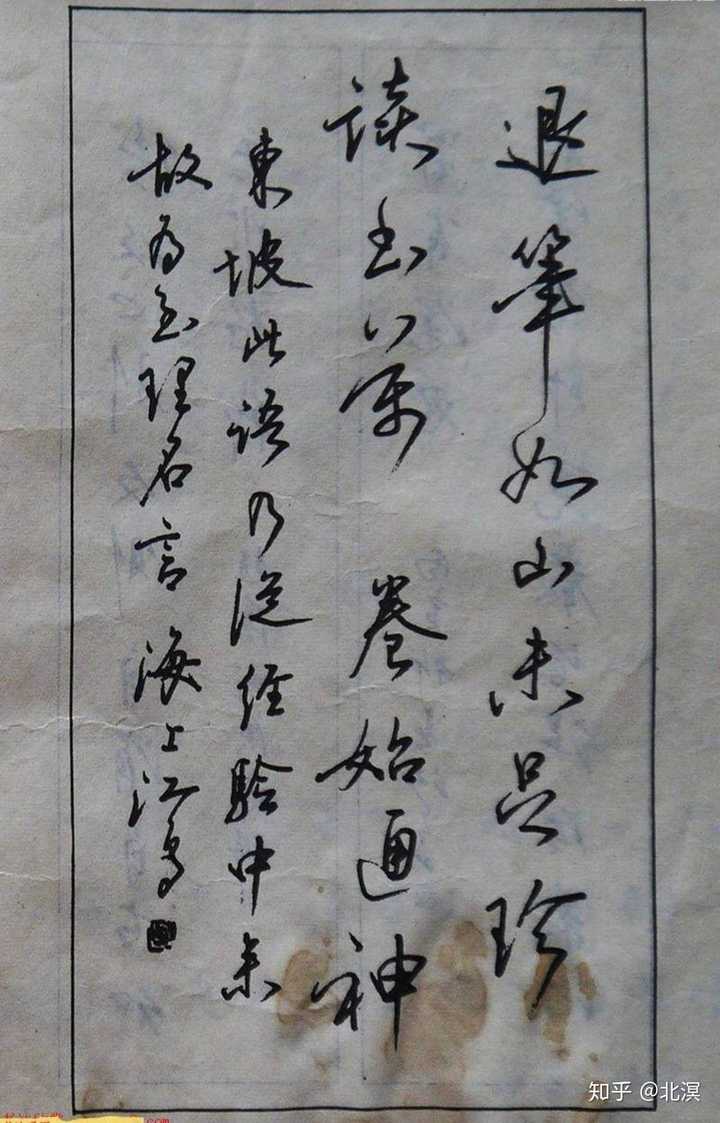 退筆如山未足珍
讀書萬卷始通神
東坡此語乃從經驗中来
故为至理名言 海上江
知乎 @北溟
.com